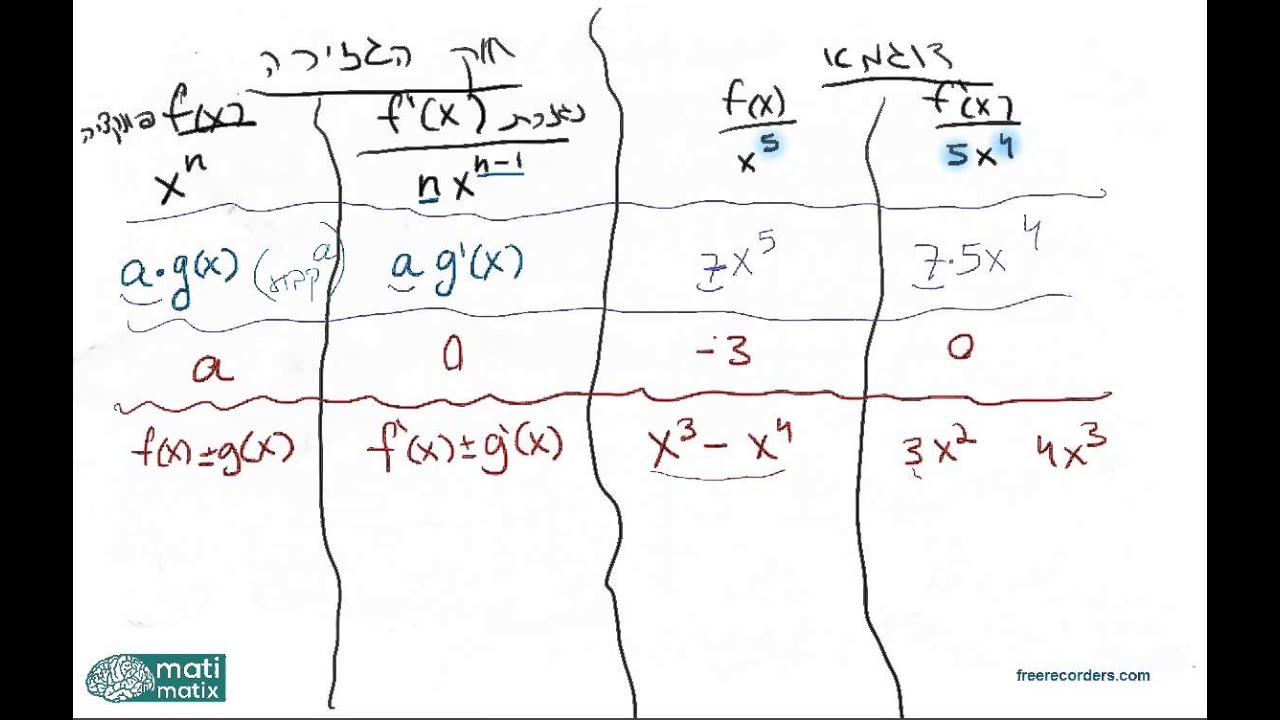 חוק הגזירה דוגמא
פונקציה f(x) f'(x) נגזרת f(x) f'(x)
x^n nx^(n-1) x^5 5x^4
a·g(x) (קבוע a) a g'(x) 7x^5 7·5x^4
a 0 -3 0
f(x)±g(x) f'(x)±g'(x) x^3 - x^4 3x^2 4x^3
mati
matix
freerecorders.com